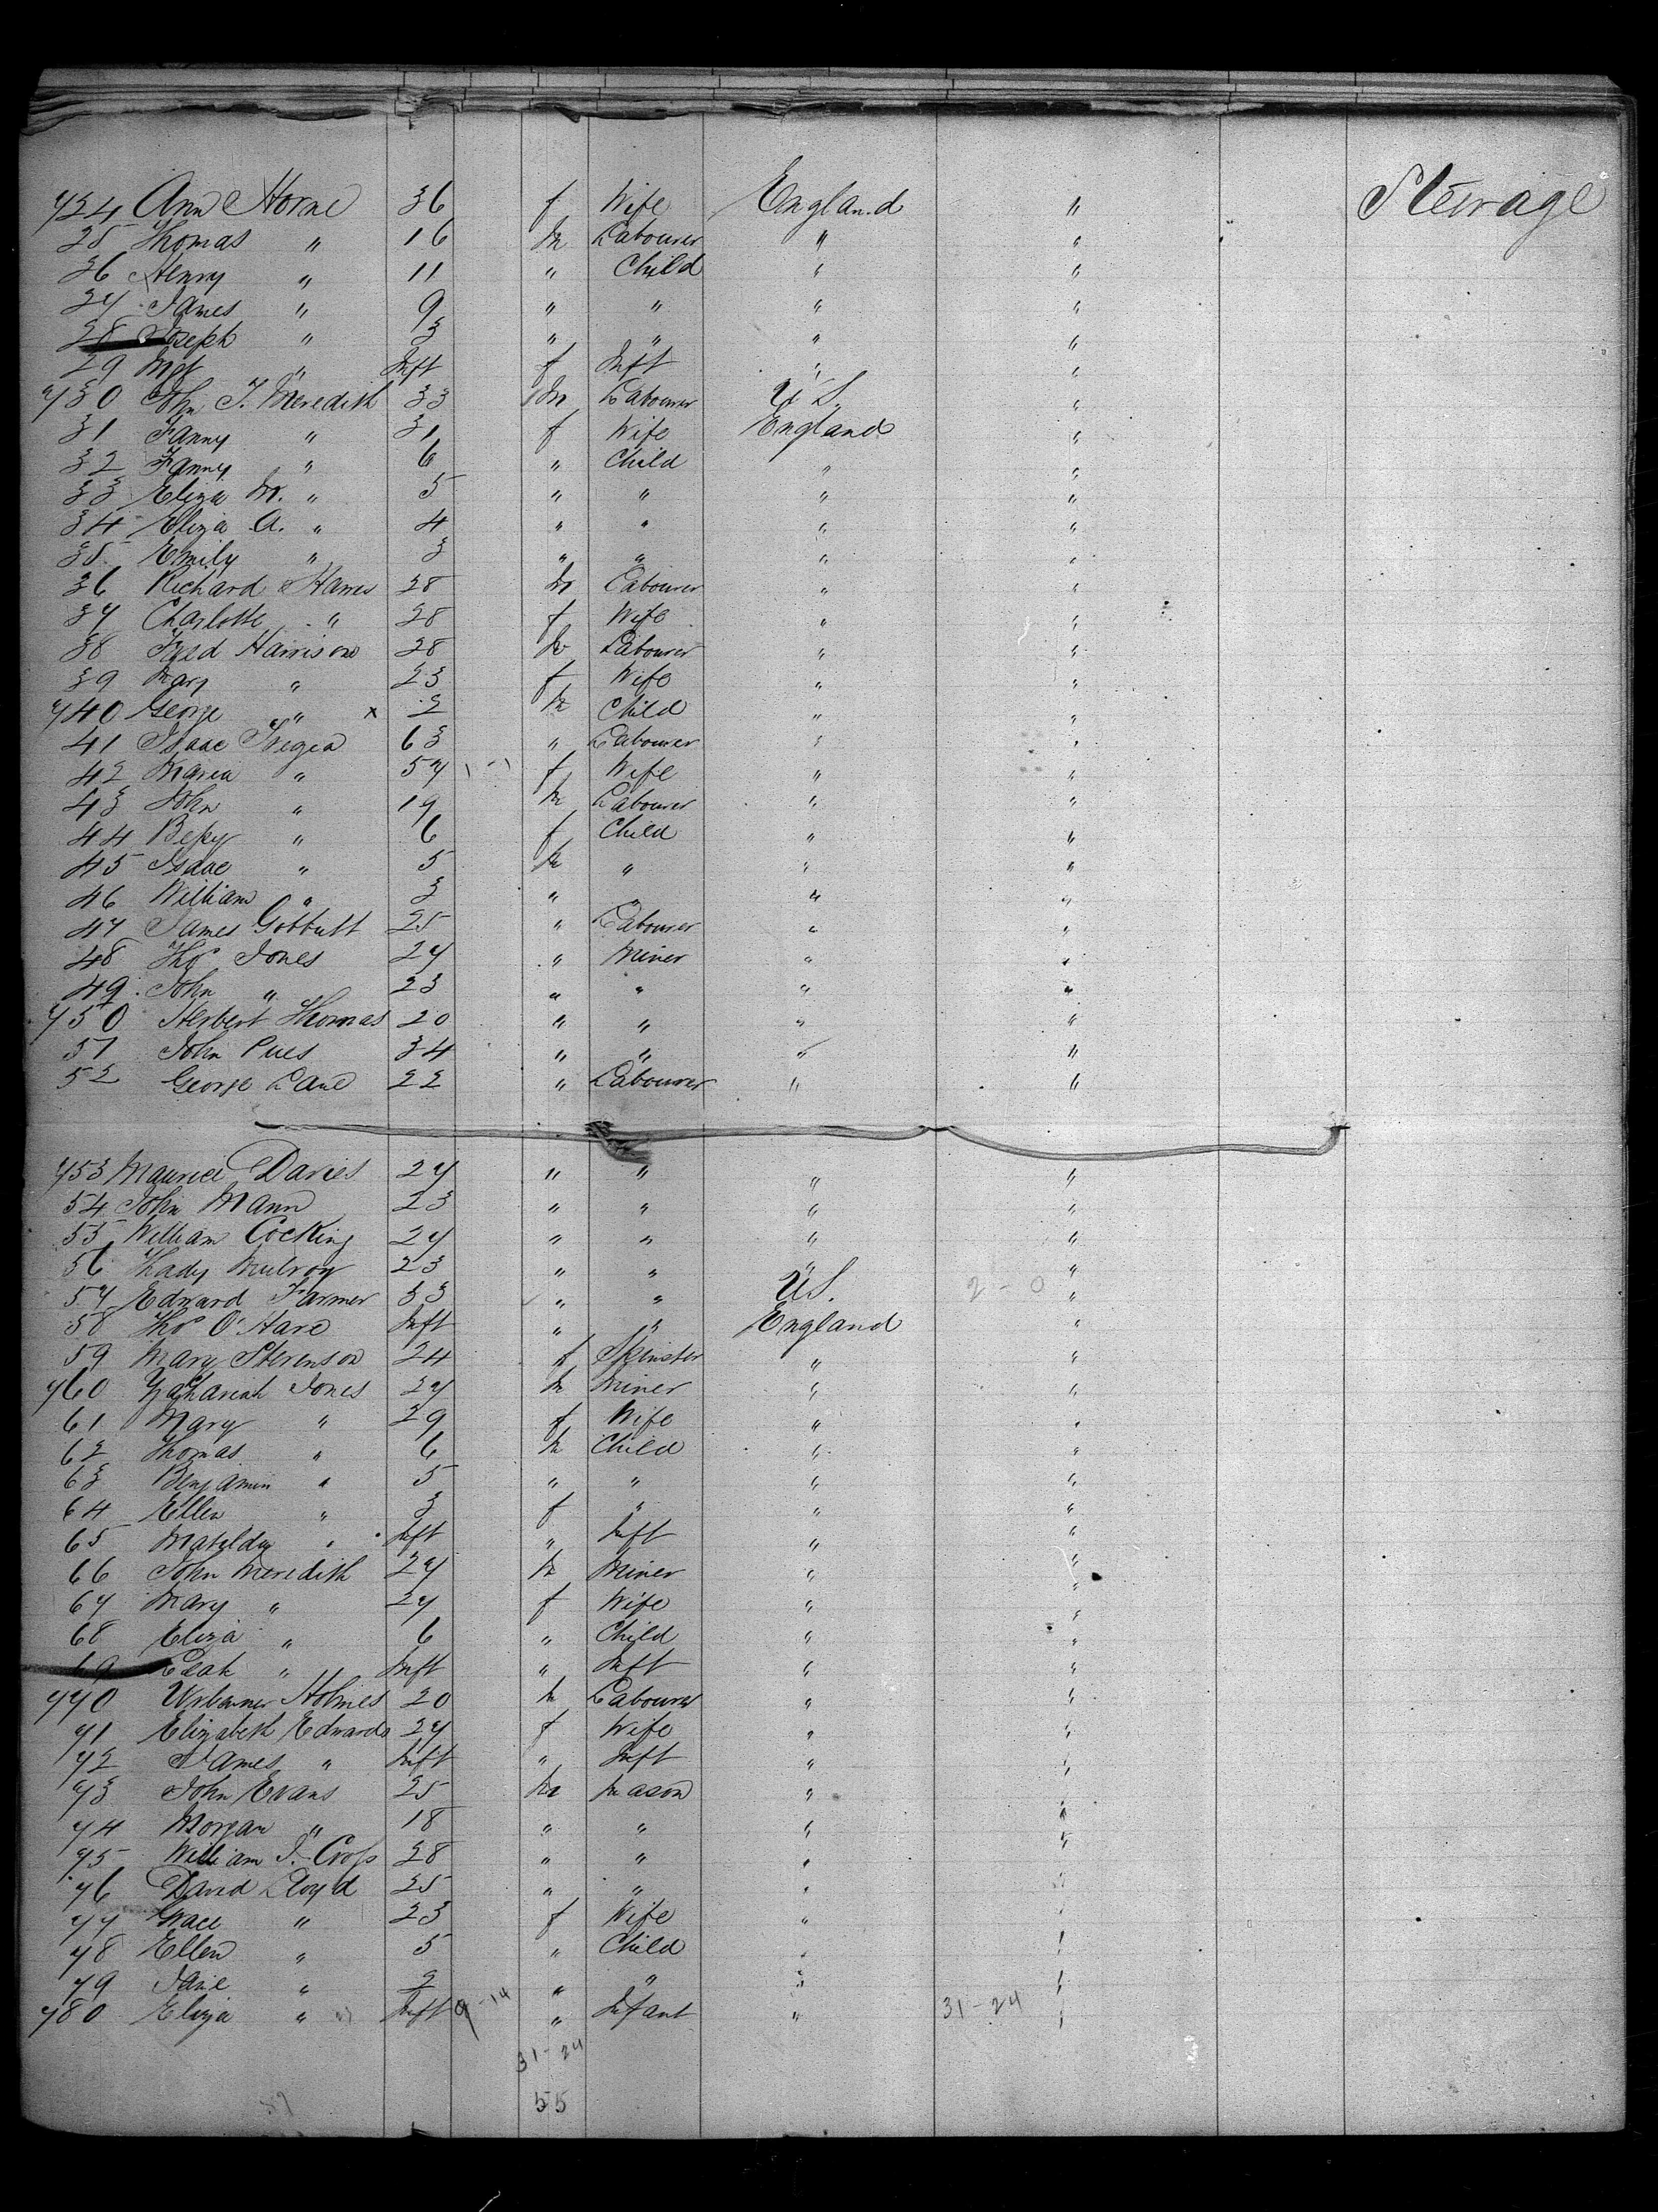 724 Ann Horne 36 f Wife England " Steerage
25 Thomas " 16 m Labourer " "
26 Henry " 11 " Child " "
27 James " 9 " " " "
28 Joseph " 3 " " " "
29 Mgt " Inft f Inft " "
730 John T. Meredith 33 m Labourer U S. "
31 Fanny " 31 f Wife England "
32 Fanny " 6 " Child " "
33 Eliza M. " 5 " " " "
34 Eliza A. " 4 " " " "
35 Emily " 3 " " " "
36 Richard Harris 28 m Labourer " "
37 Charlotte " 28 f Wife " "
38 Fred Harrison 28 m Labourer " "
39 Mary " 23 f Wife " "
740 George " x 2 m Child " "
41 Isaac 63 " Labourer " "
42 Maria " 57 f Wife " "
43 John " 19 m Labourer " "
44 Betsy " 6 f Child " "
45 Isaac " 5 m " " "
46 William " 3 " " " "
47 James Gobbutt 25 " Labourer " "
48 Thos Jones 27 " Miner " "
49 John " 23 " " " "
750 Herbert Thomas 20 " " " "
51 John Pues 34 " " " "
52 George Lane 22 " Labourer " "
753 Maurice Davies 27 " " " "
54 John Mann 23 " " " "
55 William Cocking 27 " " " "
56 Thady Mulroy 23 " " " "
57 Edward Farmer 33 " " U S. 2 - 0 "
58 Thos O'Hare Inft " " England "
59 Mary Stevenson 24 f Spinster " "
760 Zachariah Jones 27 m Miner " "
61 Mary " 29 f Wife " "
62 Thomas " 6 m Child " "
63 Benjamin " 5 " " " "
64 Ellen " 3 f " " "
65 Matilda " Inft " Inft " "
66 John Meredith 27 m Miner " "
67 Mary " 27 f Wife " "
68 Eliza " 6 " Child " "
69 Leah " Inft " Inft " "
770 Holmes 20 m Labourer " "
71 Elizabeth Edwards 27 f Wife " "
72 James " Inft " Inft " "
73 John Evans 25 m Mason " "
74 Morgan " 18 " " " "
75 William J. Cross 28 " " " "
76 David Lloyd 25 " " " "
77 Grace " 23 f Wife " "
78 Ellen " 5 " Child " "
79 Jane " 2 " " " "
780 Eliza " Inft 9-14 " Infant " 31-24 "
31-24
55